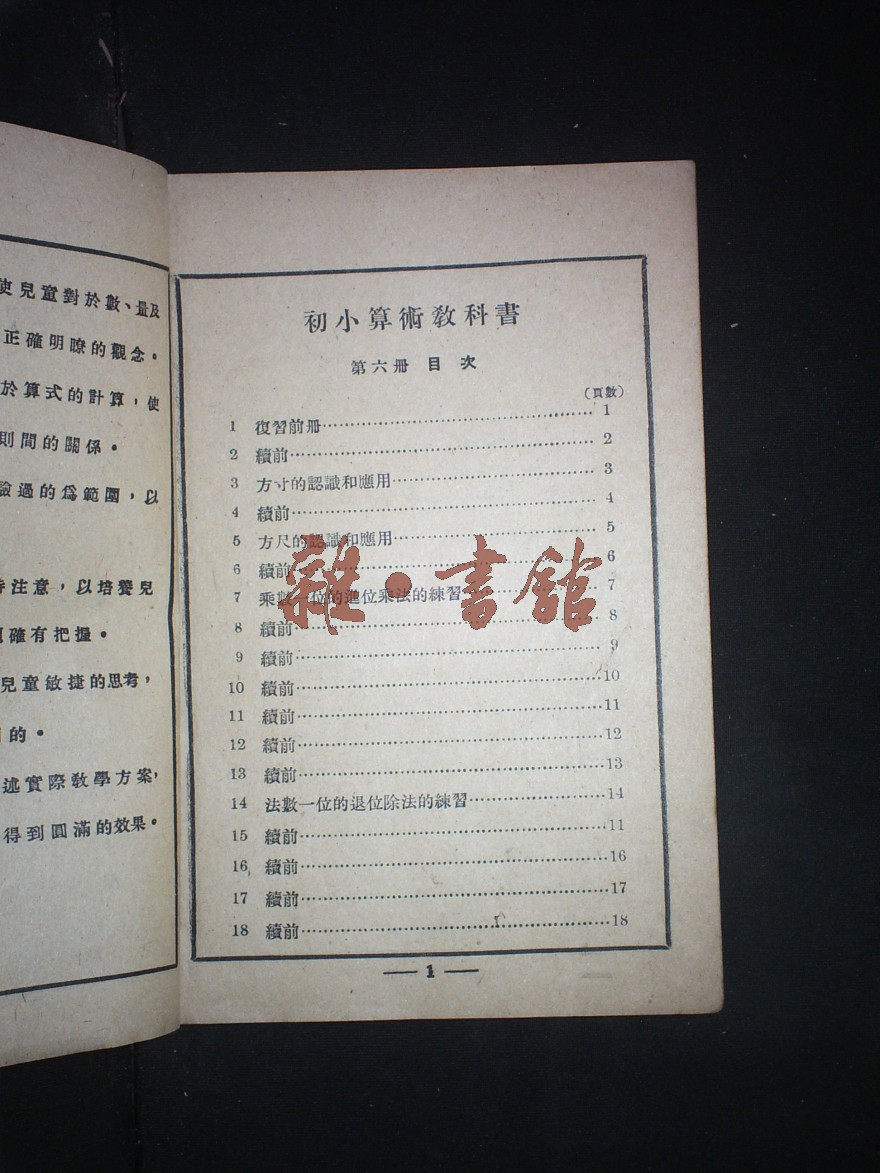 使兒童對於數、量及
正確明瞭的觀念。
於算式的計算，使
則間的關係。
驗過的爲範圍，以
注意，以培養兒
確有把握。
兒童敏捷的思考，
的。
述實際教學方案，
得到圓滿的效果。
初小算術教科書
第六冊 目次
（頁數）
1 復習前册……1
2 續前……2
3 方寸的認識和應用……3
4 續前……4
5 方尺的認識和應用……5
6 續前……6
7 乘數一位的進位乘法的練習……7
8 續前……8
9 續前……9
10 續前……10
11 續前……11
12 續前……12
13 續前……13
14 法數一位的退位除法的練習……14
15 續前……11
16 續前……16
17 續前……17
18 續前……18
— 1 —
雜·書館